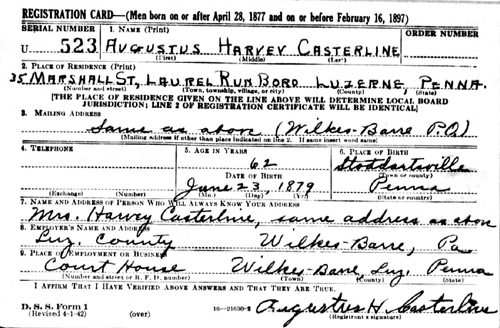 REGISTRATION CARD—(Men born on or after April 28, 1877 and on or before February 16, 1897)
SERIAL NUMBER 1. NAME (Print) ORDER NUMBER
U 523 AUGUSTUS HARVEY CASTERLINE
(First) (Middle) (Last)
2. PLACE OF RESIDENCE (Print)
35 MARSHALL ST, LAUREL RUN BORO LUZERNE, PENNA.
(Number and street) (Town, township, village, or city) (County) (State)
[THE PLACE OF RESIDENCE GIVEN ON THE LINE ABOVE WILL DETERMINE LOCAL BOARD
JURISDICTION; LINE 2 OF REGISTRATION CERTIFICATE WILL BE IDENTICAL]
3. MAILING ADDRESS
Same as above (Wilkes-Barre P.O)
[Mailing address if other than place indicated on line 2. If same insert word same]
4. TELEPHONE 5. AGE IN YEARS 6. PLACE OF BIRTH
62 Stoddartsville
DATE OF BIRTH (Town or county)
June 23, 1879 Penna
(Exchange) (Number) (Mo.) (Day) (Yr.) (State or country)
7. NAME AND ADDRESS OF PERSON WHO WILL ALWAYS KNOW YOUR ADDRESS
Mrs. Harvey Casterline, same address as above
8. EMPLOYER'S NAME AND ADDRESS
Luz. County Wilkes-Barre, Pa
9. PLACE OF EMPLOYMENT OR BUSINESS
Court House Wilkes-Barre, Luz. Penna
(Number and street or R. F. D. number) (Town) (County) (State)
I AFFIRM THAT I HAVE VERIFIED ABOVE ANSWERS AND THAT THEY ARE TRUE.
D. S. S. Form 1
(Revised 4-1-42) (over) 16—21630-2 Augustus H. Casterline
(Registrant's signature)